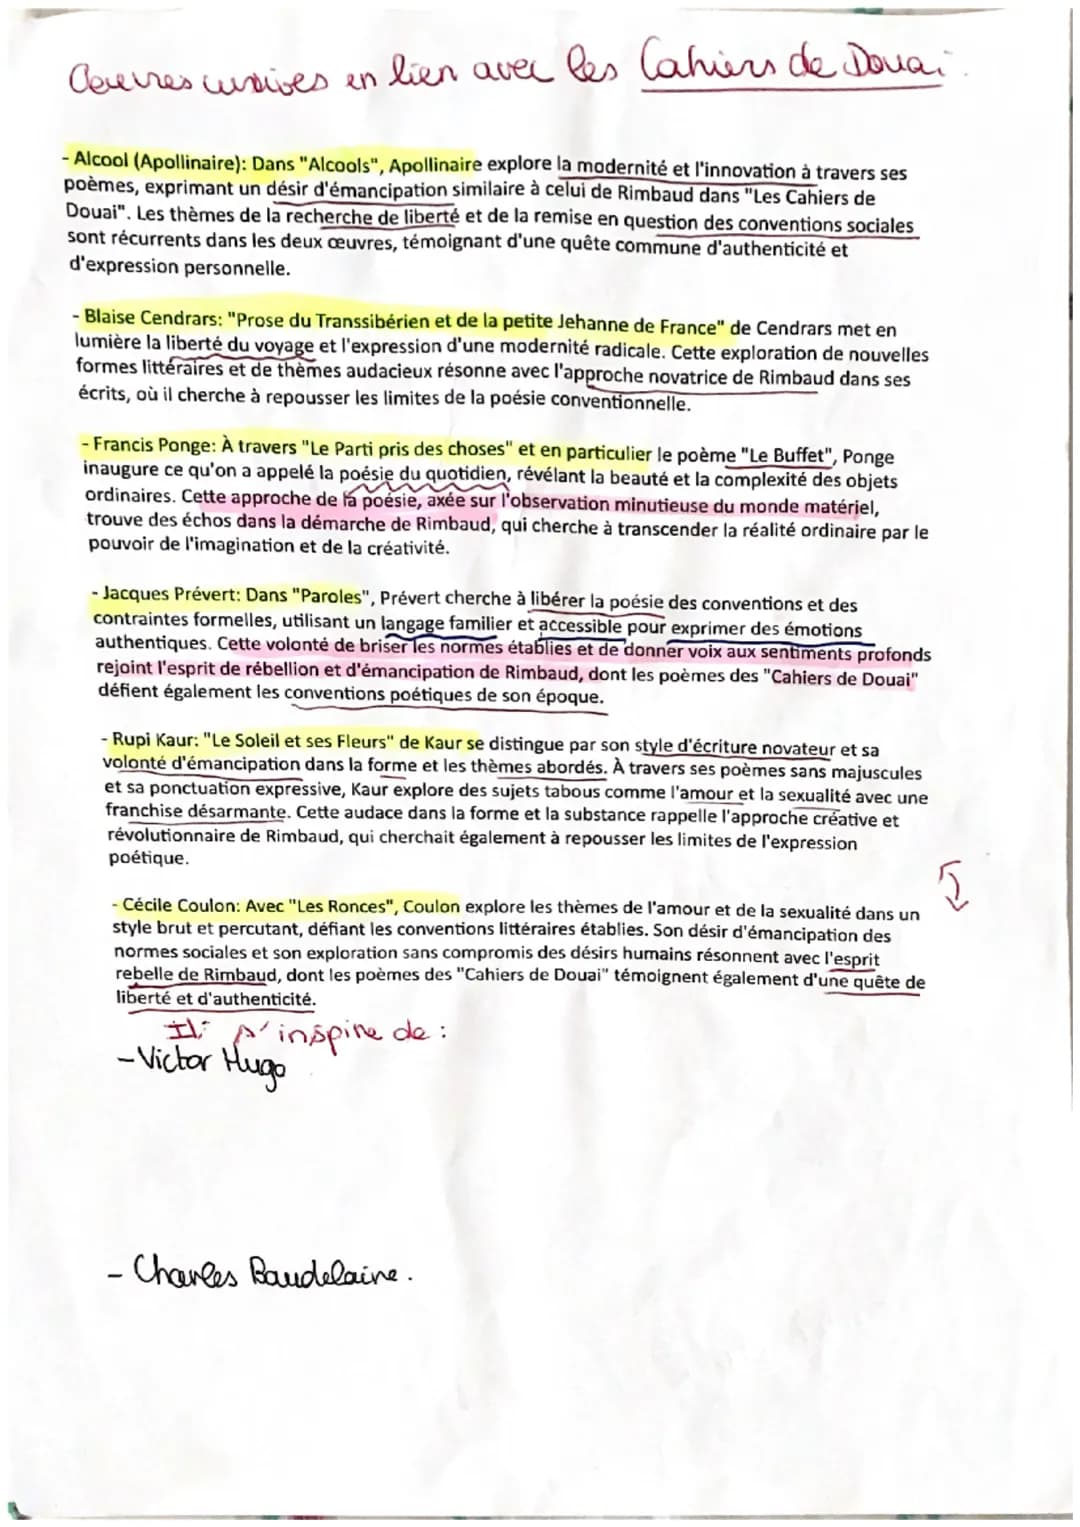 Oeuvres cursives en lien avec les Cahiers de Douai.
- Alcool (Apollinaire): Dans "Alcools", Apollinaire explore la modernité et l'innovation à travers ses
poèmes, exprimant un désir d'émancipation similaire à celui de Rimbaud dans "Les Cahiers de
Douai". Les thèmes de la recherche de liberté et de la remise en question des conventions sociales
sont récurrents dans les deux œuvres, témoignant d'une quête commune d'authenticité et
d'expression personnelle.
- Blaise Cendrars: "Prose du Transsibérien et de la petite Jehanne de France" de Cendrars met en
lumière la liberté du voyage et l'expression d'une modernité radicale. Cette exploration de nouvelles
formes littéraires et de thèmes audacieux résonne avec l'approche novatrice de Rimbaud dans ses
écrits, où il cherche à repousser les limites de la poésie conventionnelle.
- Francis Ponge: À travers "Le Parti pris des choses" et en particulier le poème "Le Buffet", Ponge
inaugure ce qu'on a appelé la poésie du quotidien, révélant la beauté et la complexité des objets
ordinaires. Cette approche de la poésie, axée sur l'observation minutieuse du monde matériel,
trouve des échos dans la démarche de Rimbaud, qui cherche à transcender la réalité ordinaire par le
pouvoir de l'imagination et de la créativité.
- Jacques Prévert: Dans "Paroles", Prévert cherche à libérer la poésie des conventions et des
contraintes formelles, utilisant un langage familier et accessible pour exprimer des émotions
authentiques. Cette volonté de briser les normes établies et de donner voix aux sentiments profonds
rejoint l'esprit de rébellion et d'émancipation de Rimbaud, dont les poèmes des "Cahiers de Douai"
défient également les conventions poétiques de son époque.
- Rupi Kaur: "Le Soleil et ses Fleurs" de Kaur se distingue par son style d'écriture novateur et sa
volonté d'émancipation dans la forme et les thèmes abordés. À travers ses poèmes sans majuscules
et sa ponctuation expressive, Kaur explore des sujets tabous comme l'amour et la sexualité avec une
franchise désarmante. Cette audace dans la forme et la substance rappelle l'approche créative et
révolutionnaire de Rimbaud, qui cherchait également à repousser les limites de l'expression
poétique.
- Cécile Coulon: Avec "Les Ronces", Coulon explore les thèmes de l'amour et de la sexualité dans un
style brut et percutant, défiant les conventions littéraires établies. Son désir d'émancipation des
normes sociales et son exploration sans compromis des désirs humains résonnent avec l'esprit
rebelle de Rimbaud, dont les poèmes des "Cahiers de Douai" témoignent également d'une quête de
liberté et d'authenticité.
Il s'inspire de :
- Victor Hugo
- Charles Baudelaire.